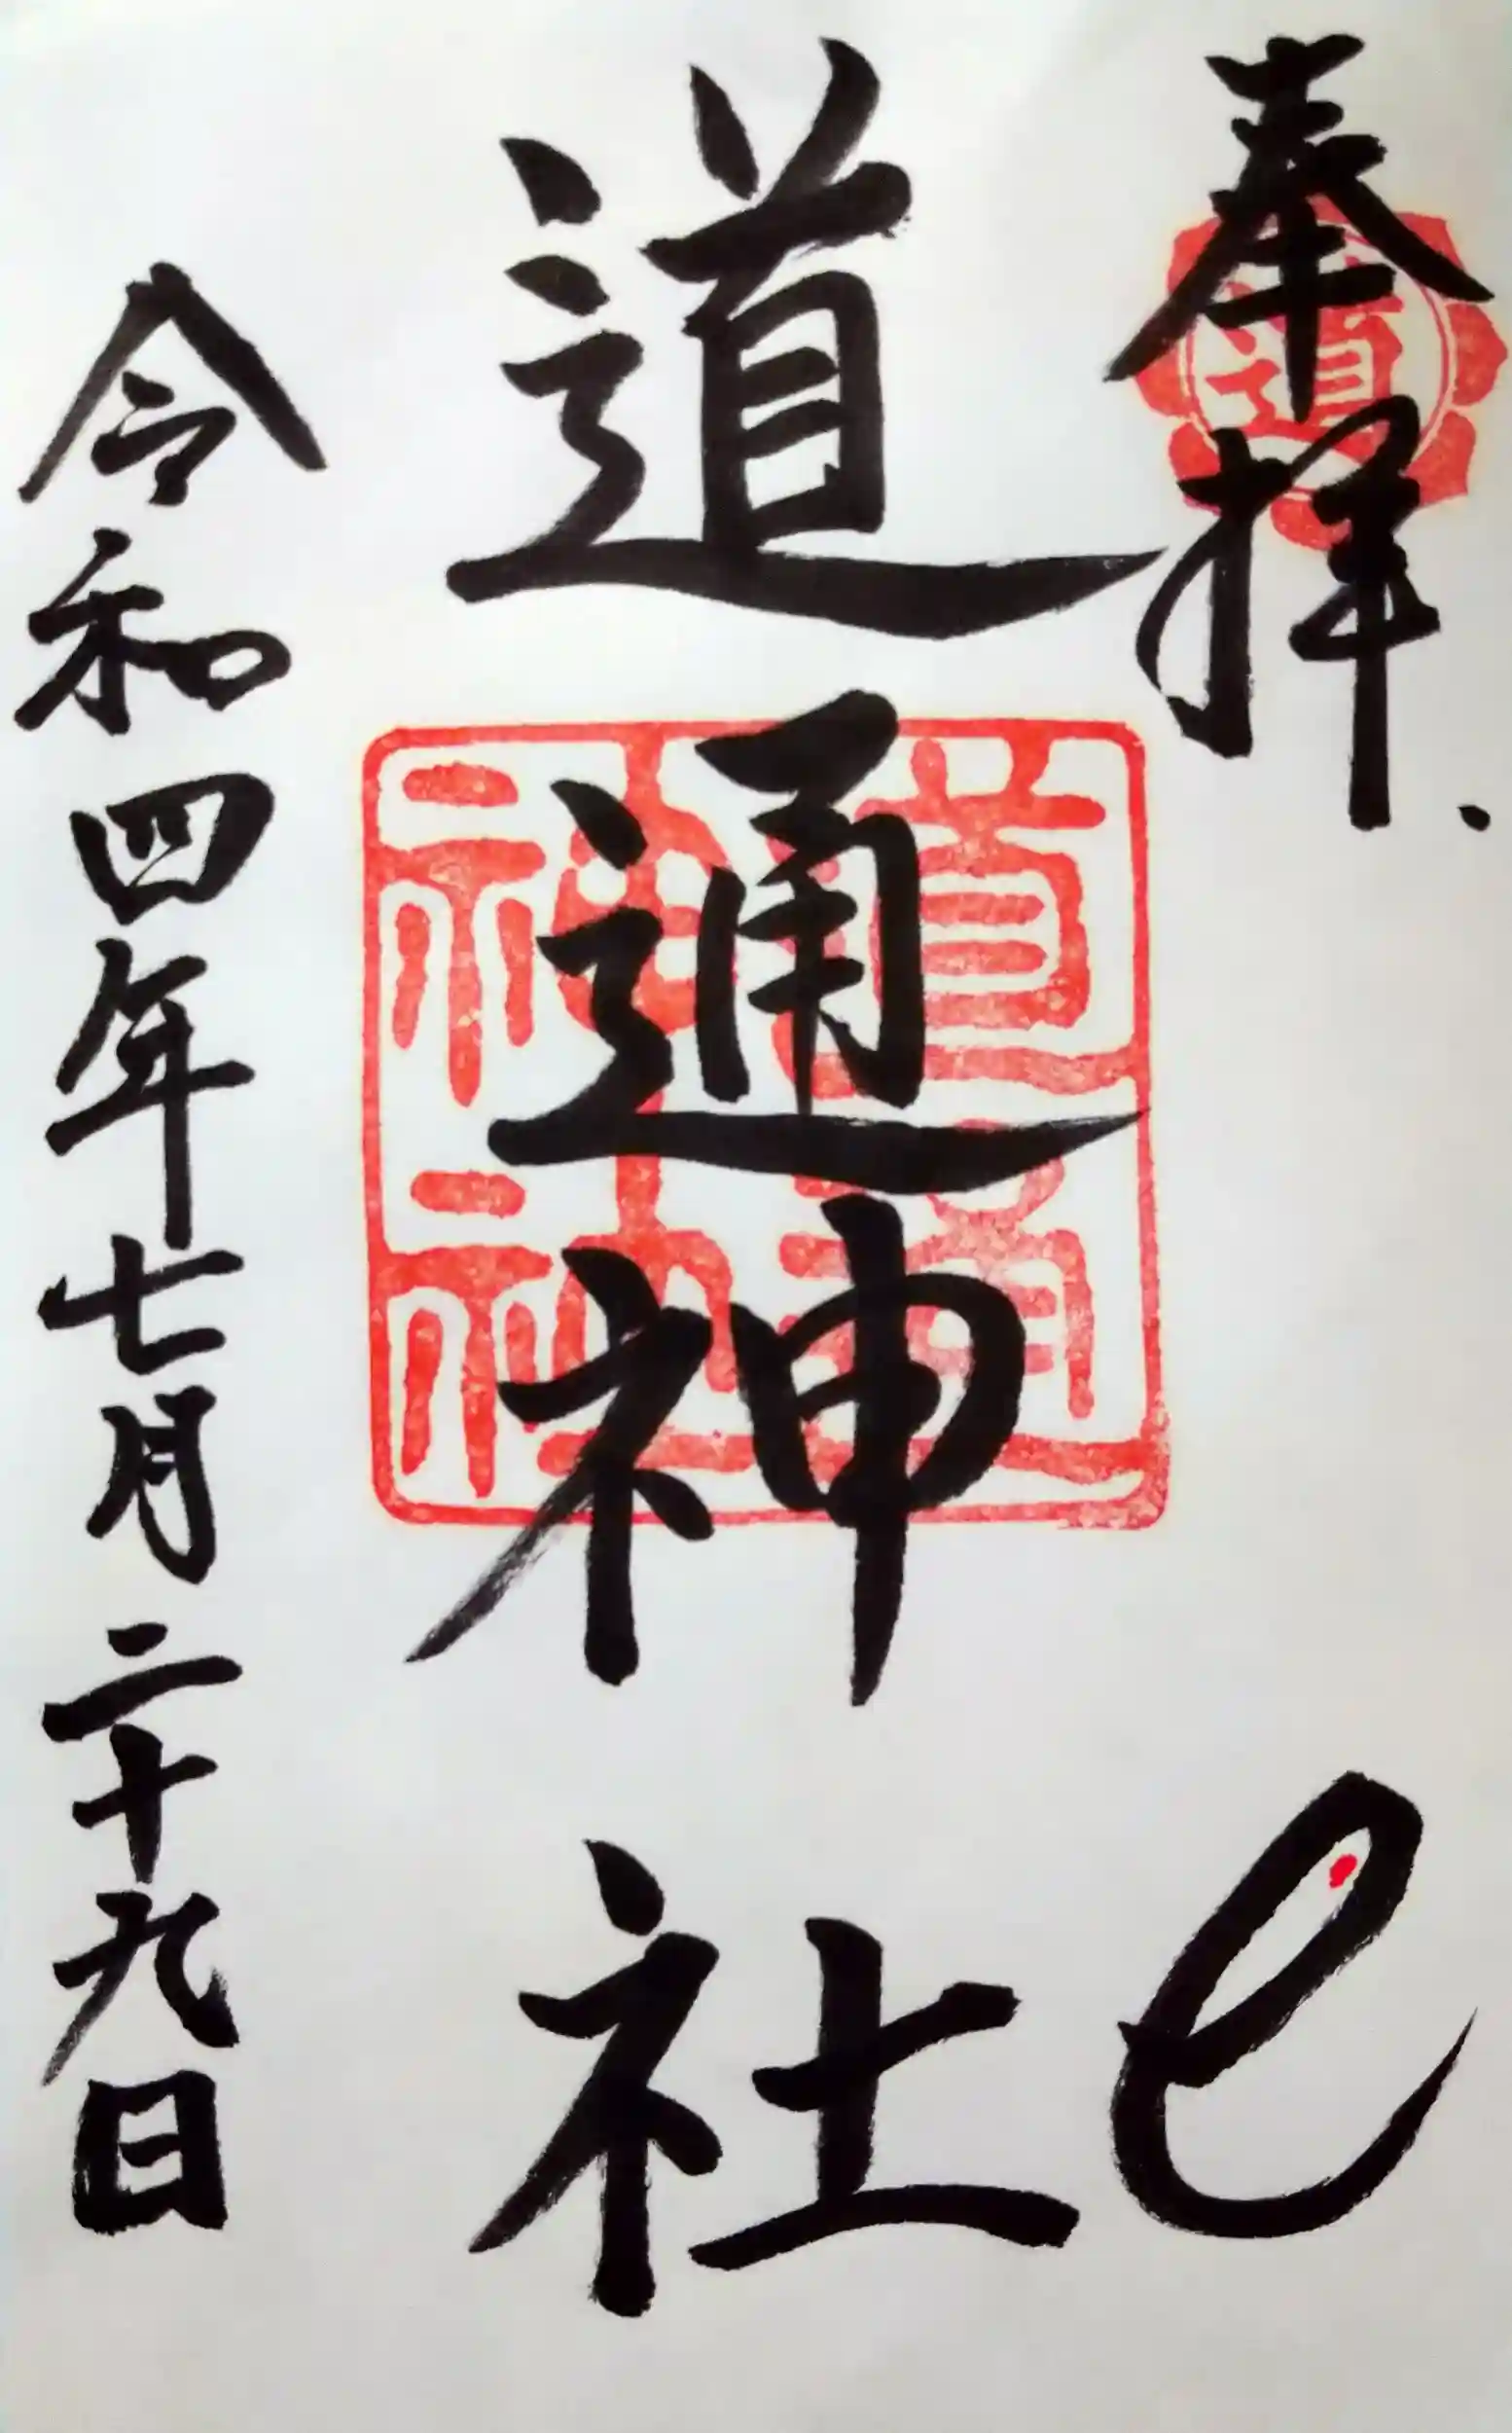 奉拝
道
道通神社
道通神社
巳
令和四年七月二十九日